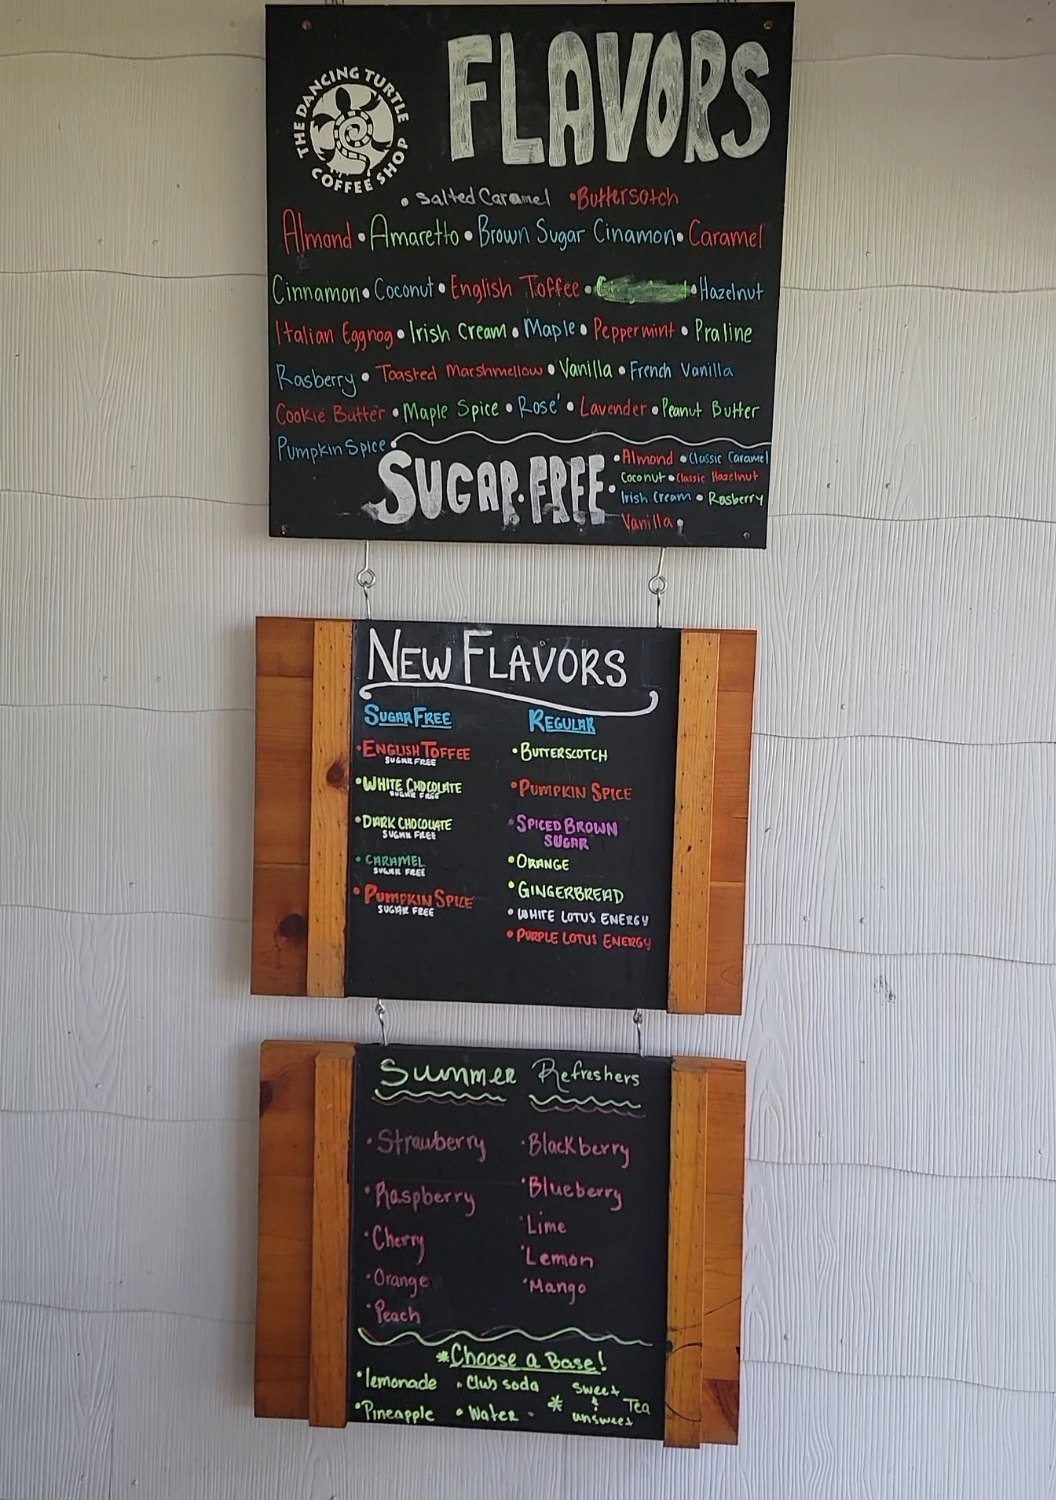 THE DANCING TURTLE
COFFEE SHOP
FLAVORS
• Salted Caramel • Buttersotch
Almond • Amaretto • Brown Sugar Cinamon • Caramel
Cinnamon • Coconut • English Toffee • • Hazelnut
Italian Eggnog • Irish Cream • Maple • Peppermint • Praline
Rasberry • Toasted Marshmellow • Vanilla • French Vanilla
Cookie Butter • Maple Spice • Rose' • Lavender • Peanut Butter
Pumpkin Spice •
SUGAR-FREE
• Almond • Classic Caramel
Coconut • Classic Hazelnut
• Irish Cream • Rasberry
Vanilla •
NEW FLAVORS
SUGAR FREE
• ENGLISH TOFFEE
SUGAR FREE
• WHITE CHOCOLATE
SUGAR FREE
• DARK CHOCOLATE
SUGAR FREE
• CARAMEL
SUGAR FREE
• PUMPKIN SPICE
SUGAR FREE
REGULAR
• BUTTERSCOTCH
• PUMPKIN SPICE
• SPICED BROWN
SUGAR
• ORANGE
• GINGERBREAD
• WHITE LOTUS ENERGY
• PURPLE LOTUS ENERGY
Summer Refreshers
• Strawberry
• Raspberry
• Cherry
• Orange
• Peach
• Blackberry
• Blueberry
• Lime
• Lemon
• Mango
*Choose a Base!
• lemonade • Club soda
• Pineapple • Water •
* sweet
&
unsweet
Tea